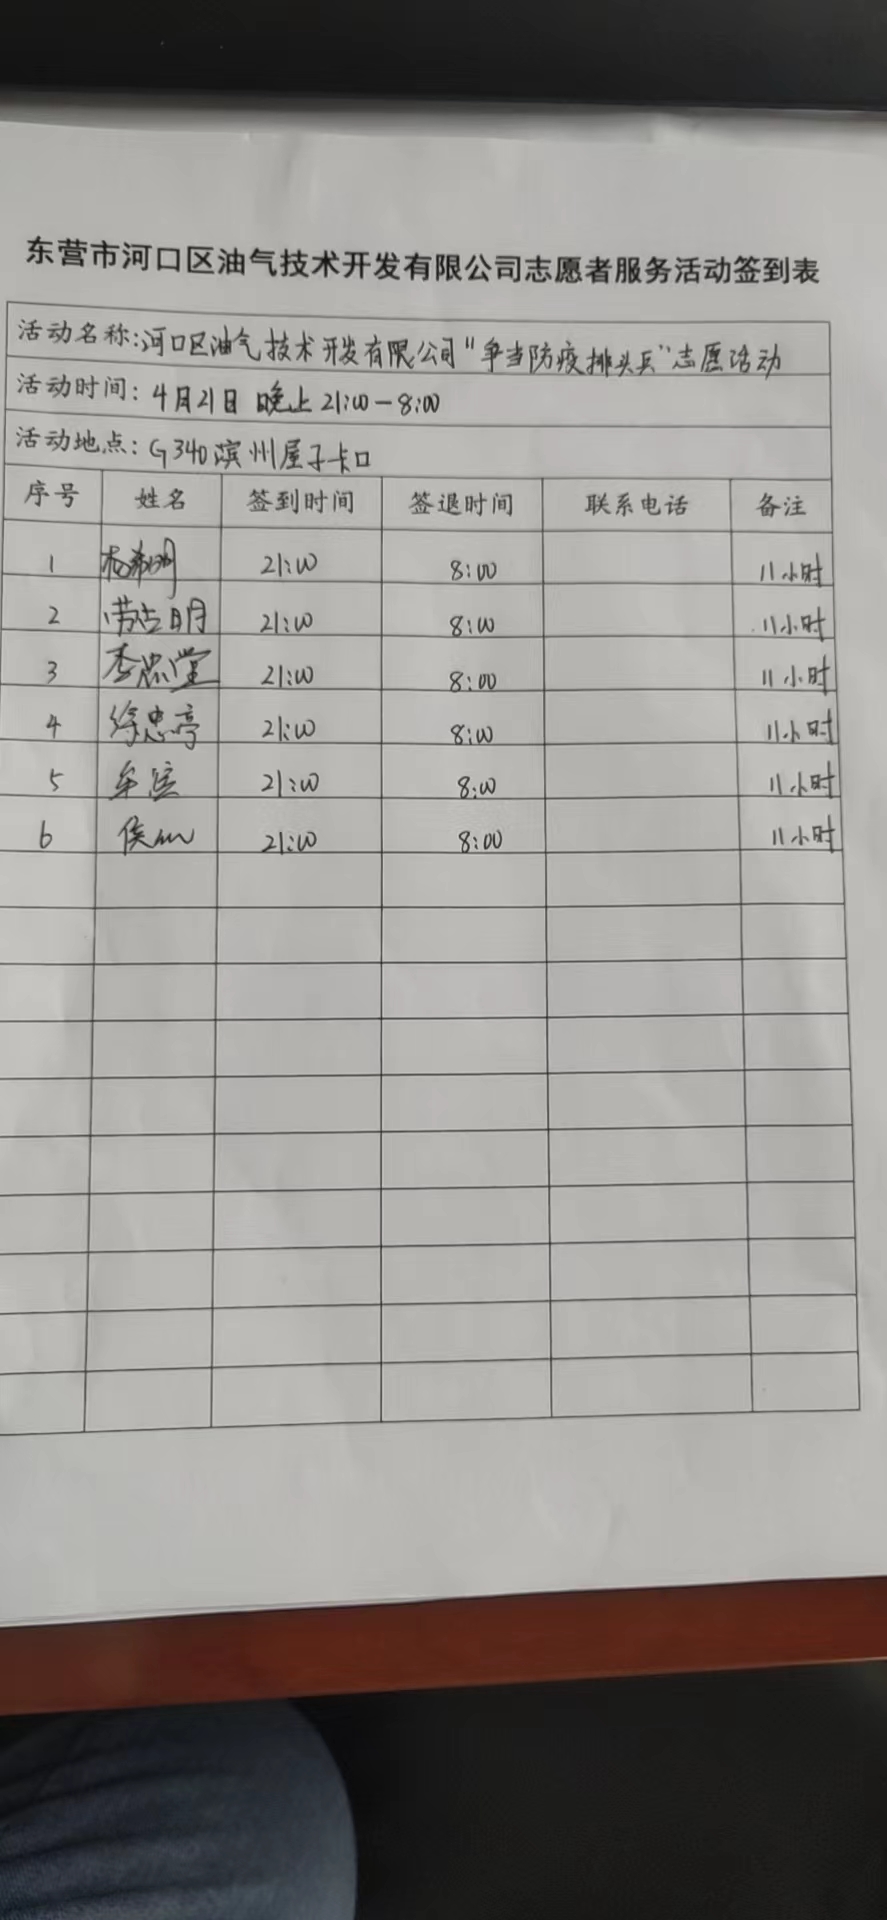 东营市河口区油气技术开发有限公司志愿者服务活动签到表
活动名称:河口区油气技术开发有限公司“争当防疫排头兵”志愿活动
活动时间: 4月21日 晚上 21:00-8:00
活动地点: G340滨州屋子卡口
序号 姓名 签到时间 签退时间 联系电话 备注
1 21:00 8:00 11小时
2 21:00 8:00 11小时
3 李忠堂 21:00 8:00 11小时
4 徐忠亭 21:00 8:00 11小时
5 21:00 8:00 11小时
6 21:00 8:00 11小时